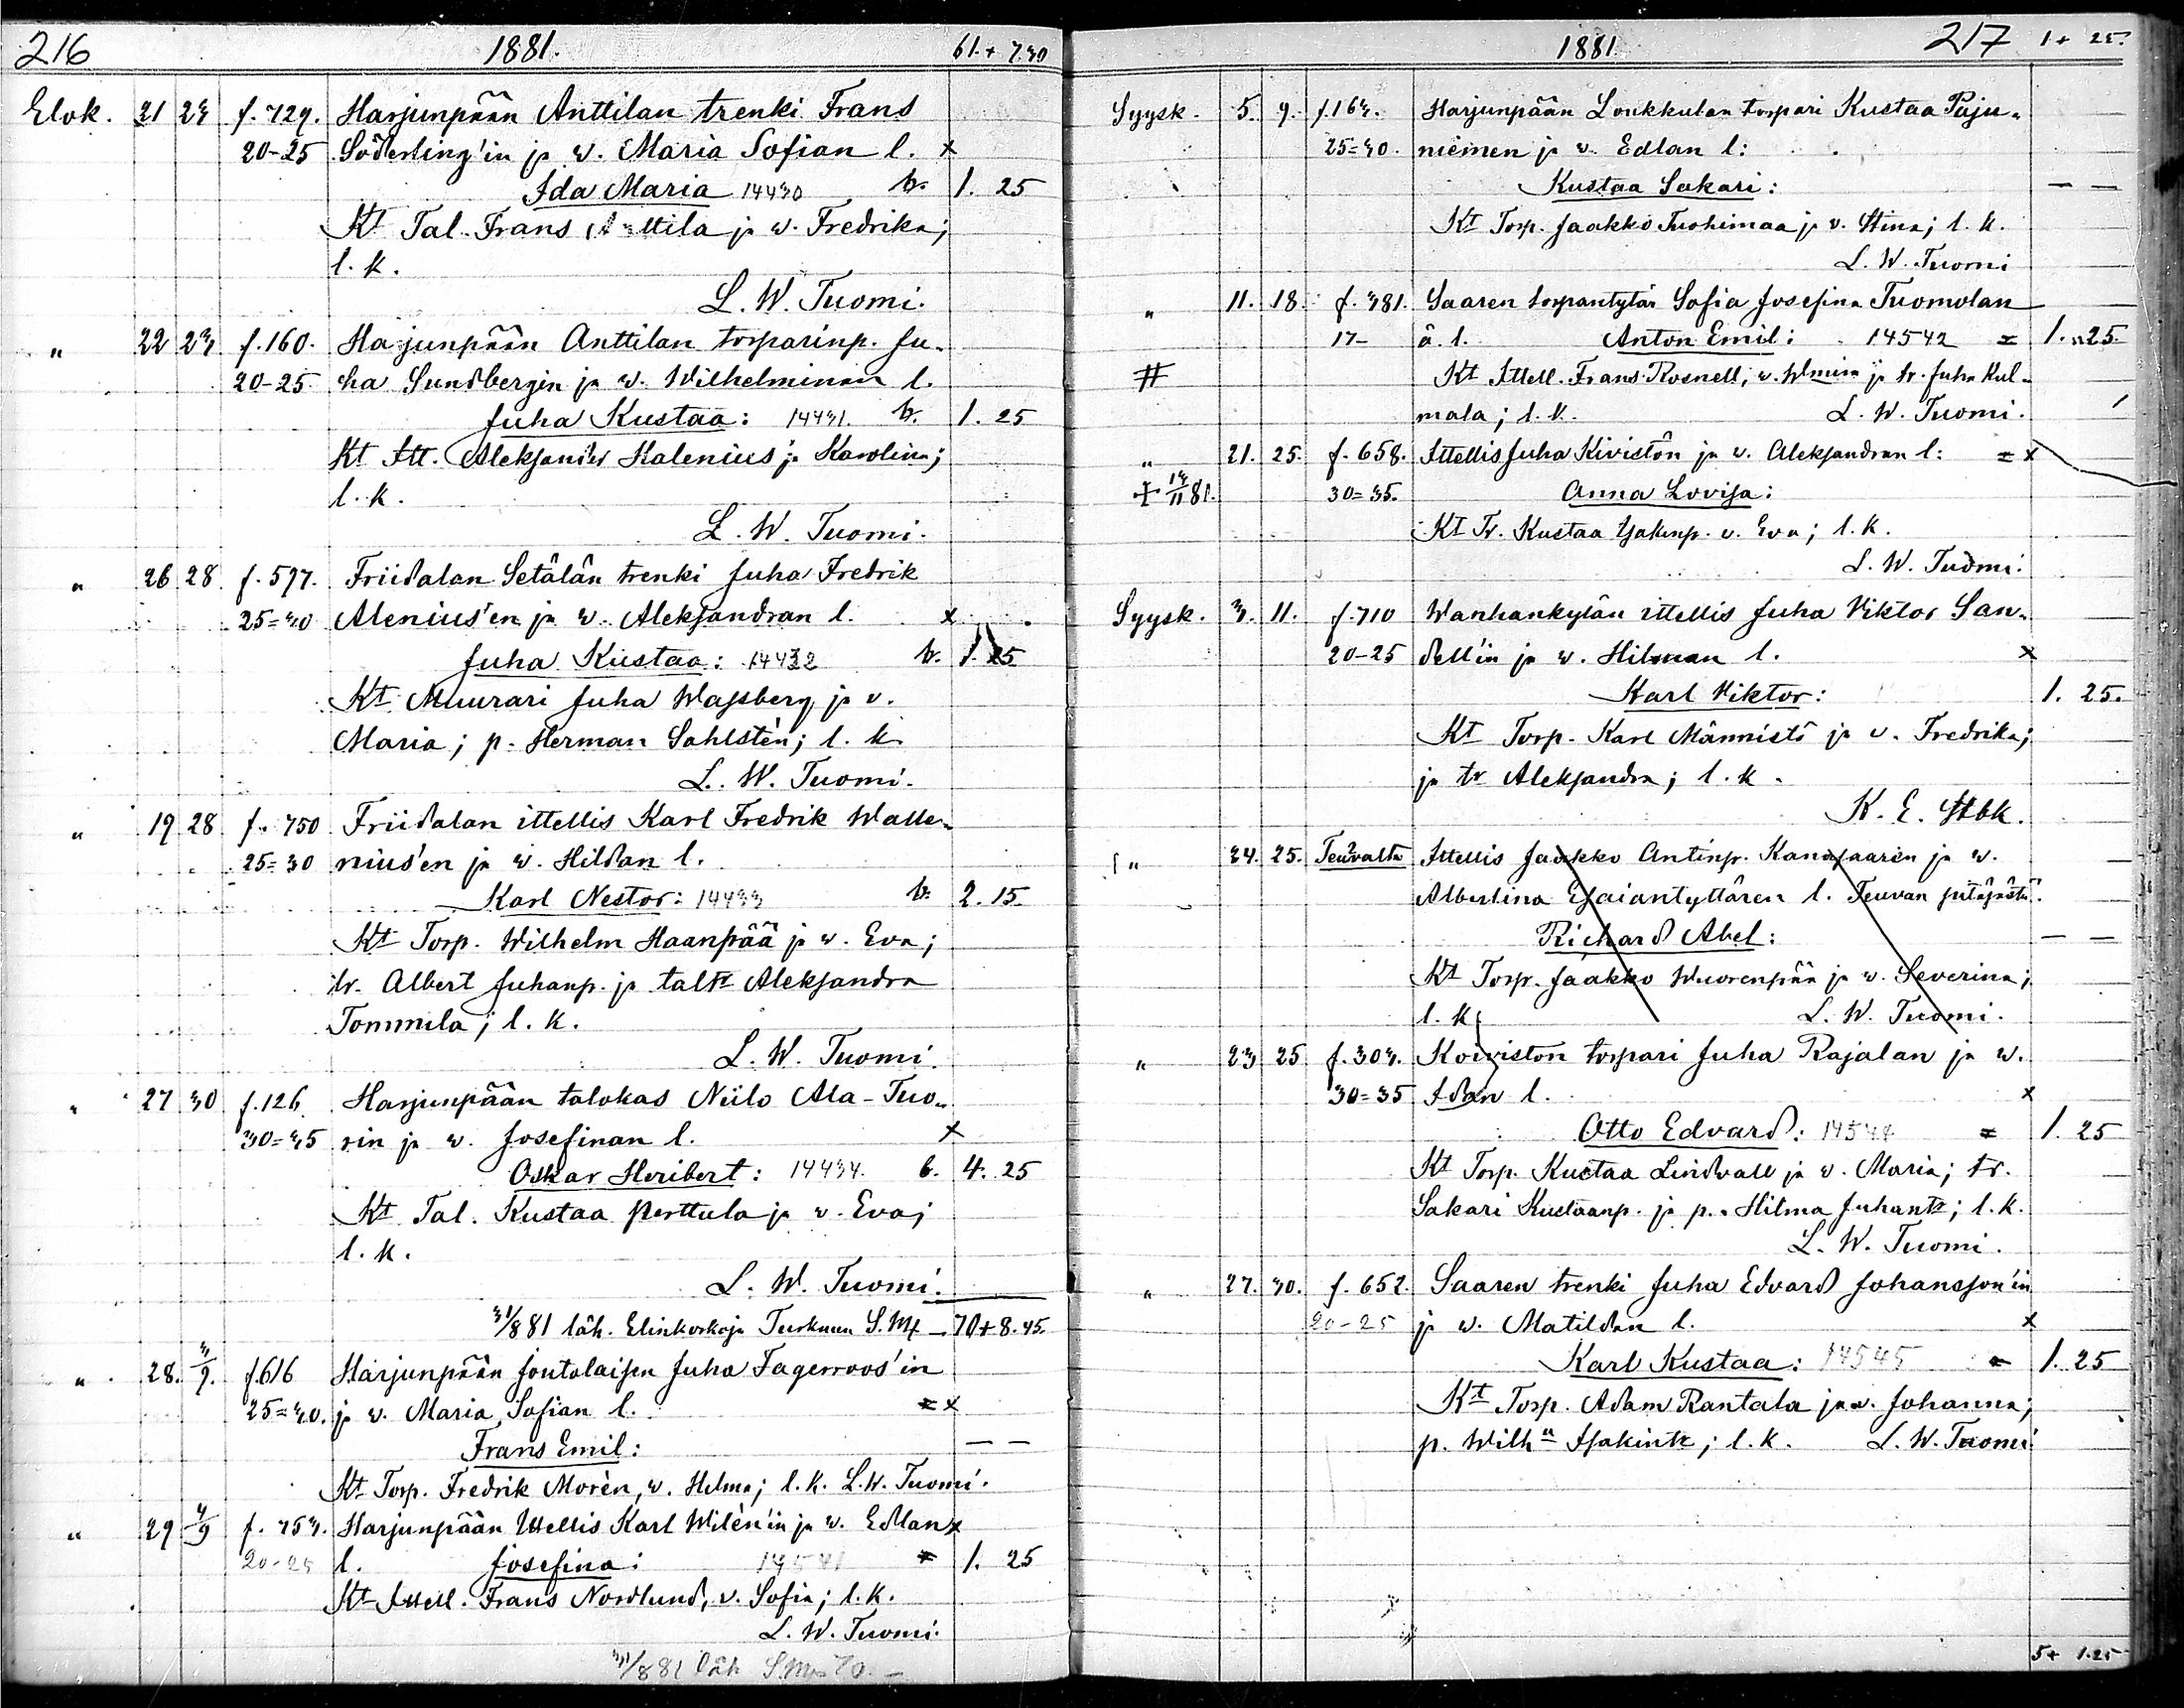 216 1881. 61.+ 7.30
Elok. 21 23 f. 729. Harjunpään Anttilan trenki Frans
20-25 Söderling'in ja w. Maria Sofian l. x
Ida Maria 14430 1. 25
Kt Tal. Frans Anttila ja w. Fredrika;
l. k.
L. W. Tuomi.
" 22 23 f. 160. Harjunpään Anttilan torparinp. Ju-
20-25. ha Sundbergin ja w. Wilhelminan l.
Juha Kustaa: 14431. 1. 25
Kt Itt. Aleksander Kalenius ja Karolina;
l. k.
L. W. Tuomi.
" 26 28 f. 597. Friidalan Setälän trenki Juha Fredrik
25=30 Alenius'en ja w. Aleksandran l. x
Juha Kustaa: 14432 1. 25
Kt Muurari Juha Wassberg ja v.
Maria; p. Herman Sahlstén; l. k.
L. W. Tuomi.
" 19 28 f. 750 Friidalan ittellis Karl Fredrik Walle-
25=30 nius'en ja w. Hildan l.
Karl Nestor: 14433 2. 15
Kt Torp. Wilhelm Haanpää ja w. Eva;
tr. Albert Juhanp. ja taltr Aleksandra
Tommila; l. k.
L. W. Tuomi.
" 27 30 f. 126 Harjunpään talokas Niilo Ala-Tuo-
30=35 rin ja w. Josefinan l. x
Oskar Heribert: 14434. 4. 25
Kt Tal. Kustaa Perttula ja w. Eva;
l. k.
L. W. Tuomi.
31/8 81 läh. Elinkorkoja Turkuun S.M 70+8.45.
" 28. 3/9. f. 616 Harjunpään joutolaisen Juha Fagerroos'in
25=30. ja v. Maria Sofian l. x
Frans Emil: — —
Kt Torp. Fredrik Morèn, w. Helma; l. k. L. W. Tuomi.
" 29 4/9 f. 753. Harjunpään Ittellis Karl Wilèn'in ja w. Edlan x
20-25 l. Josefina: 14541 1. 25
Kt Ittell. Frans Nordlund, v. Sofia; l. k.
L. W. Tuomi.
31/8 81 läh S.M 70. —
1881. 217 1+ 25.
Syysk. 5. 9. f. 163. Harjunpään Loukkulan torpari Kustaa Paju-
25=30. niemen ja w. Edlan l:
Kustaa Sakari: — —
Kt Torp. Jaakko Tuohimaa ja v. Stina; l. k.
L. W. Tuomi
" 11. 18. f. 381. Saaren torpantytär Sofia Josefina Tuomolan
17- ä. l. Anton Emil: 14542 1. 25.
Kt Ittell. Frans Rosnell, w. Wmina ja tr. Juha Kul-
mala; l. k. L. W. Tuomi.
" 21. 25. f. 658. Ittellis Juha Kivistön ja w. Aleksandran l: x
+ 13/11 81. 30=35. Anna Lovisa:
Kt Tr. Kustaa Isakinp. v. Eva; l. k.
L. W. Tuomi.
Syysk. 3. 11. f. 710 Wanhankylän ittellis Juha Viktor San-
20-25 dell'in ja w. Hilman l. x
Karl Viktor: 1. 25.
Kt Torp. Karl Männistö ja v. Fredrika;
ja tr Aleksandra; l. k.
K. E. Stbk.
" 24. 25. Teuvalta Ittellis Jaakko Antinp. Kanasaaren ja w.
Albertina Esaiantyttären l. Teuvan pitäjästä.
Richard Abel: — —
Kt Torp. Jaakko Wuorenpää ja w. Severina;
l. k. L. W. Tuomi.
" 23 25 f. 303. Koiviston torpari Juha Rajalan ja w.
30=35 Idan l. x
Otto Edvard: 14544 1. 25
Kt Torp. Kustaa Lindvall ja v. Maria; tr.
Sakari Kustaanp. ja p. Hilma Juhantr; l. k.
L. W. Tuomi.
" 27. 30. f. 652. Saaren trenki Juha Edvard Johansson'in
20-25 ja w. Matildan l. x
Karl Kustaa: 14545 1. 25
Kt Torp. Adam Rantala ja w. Johanna;
p. Wilha Isakintr; l. k. L. W. Tuomi
5+ 1.25